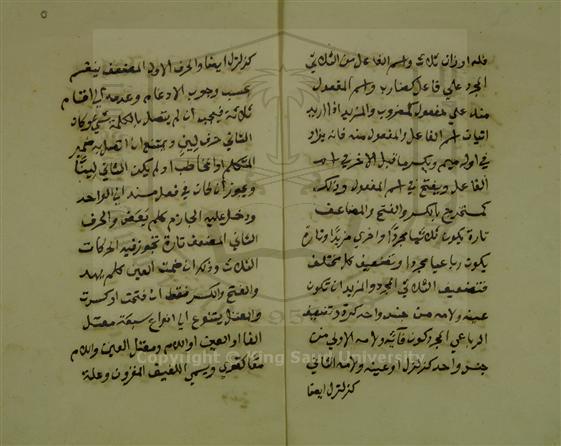 فله اوزان ثلاث واسم الفاعل من الثلاثي
المجرد علي فاعل كضارب واسم المفعول
منه علي مفعول كمضروب والمزيد اذا اريد
اتيان اسم الفاعل والمفعول منه فانه يزاد
في اوله ميم ويكسر ماقبل الاخر في اسم
الفاعل ويفتح في اسم المفعول وذلك
كمستخرج بالكسر والفتح والمضاعف
تارة يكون ثلاثيا مجردا واخري مزيدا وتارة
يكون رباعيا مجردا وتضعيف كل مختلف
فتضعيف الثلاثي المجرد والمزيد ان تكون
عينه ولامه من جنس واحد كرد وتضعيف
الرباعي المجرد كون فآئه ولامه الاولي من
جنس واحد كزلزل او عينه ولامه الثاني
كزلزل ايضا
كزلزل ايضا والحرف الاول المضعف ينقسم
بحسب وجوب الادغام وعدمه الي اقسام
ثلاثة فيجب ان لم يتصل بالكلمة شي وكان
الثاني حرف لين ويمتنع ان اتصل به ضمير
المتكلم او المخاطب او لم يكن الثاني لينا
ويجوز ان كان في فعل مسند الي الواحد
ودخل عليه الجازم كلم يعض والحرف
الثاني المضعف تارة تجوز فيه الحركات
الثلاث وذلك ان ضمت العين كلم يمد
والفتح والكسر فقط ان فتحت او كسرت
والمعتل يتنوع الي انواع سبعة معتل
الفا او العين او اللام ومعتل العين واللام
معا كقوي ويسمي اللفيف المقرون وعلة
Copyright © King Saud University